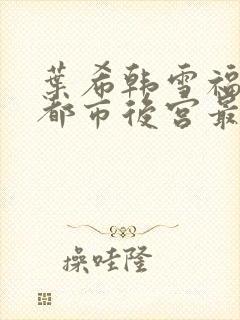 葉希韩雪福
都市後宫最
操哇隆